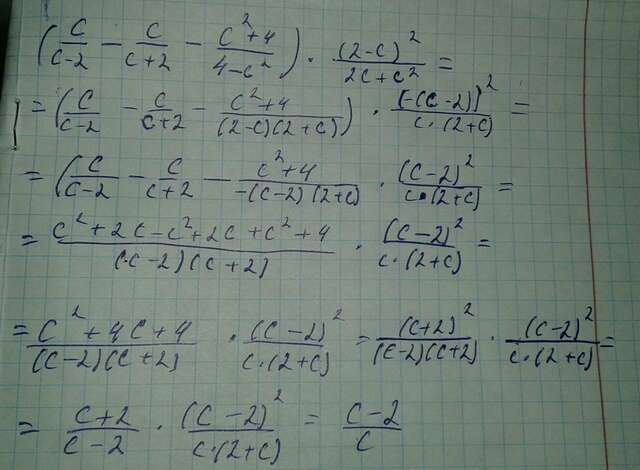 (c/(c-2) - c/(c+2) - (c²+4)/(4-c²)) · (2-c)²/(2c+c²) =
= (c/(c-2) - c/(c+2) - (c²+4)/((2-c)(2+c))) · [-(c-2)]²/(c·(2+c)) =
= (c/(c-2) - c/(c+2) - (c²+4)/(-(c-2)(2+c)) · (c-2)²/(c·(2+c)) =
= (c²+2c-c²+2c+c²+4)/((c-2)(c+2)) · (c-2)²/(c·(2+c)) =
= (c²+4c+4)/((c-2)(c+2)) · (c-2)²/(c·(2+c)) = (c+2)²/((c-2)(c+2)) · (c-2)²/(c·(2+c)) =
= (c+2)/(c-2) · (c-2)²/(c·(2+c)) = (c-2)/c